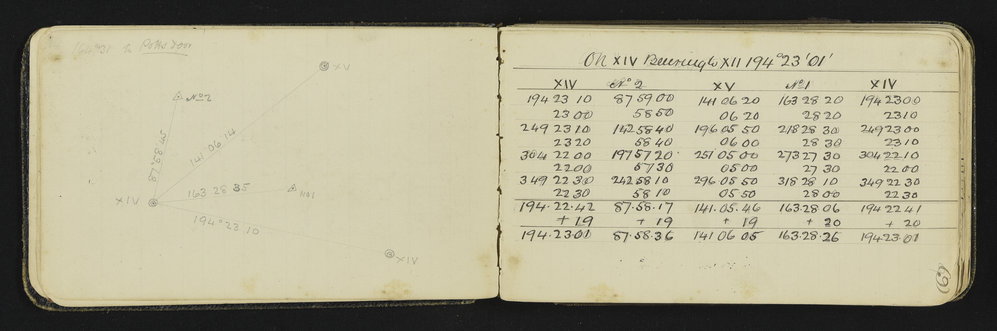 164°31' to Potts Door
XV
No 2
87.58.45
141 06 14
163 28 35
No 1
XIV
194° 23 10
XIV
On XIV Bearing to XII 194°23'01'
XIV No 2 XV No 1 XIV
194 23 10 87 59 00 141 06 20 163 28 20 194 23 00
23 00 58 50 06 20 28 20 23 10
249 23 10 142 58 40 196 05 50 218 28 30 249 23 00
23 20 58 40 06 00 28 30 23 10
304 22 00 197 57 20 251 05 00 273 27 30 304 22 10
22 00 57 30 05 00 27 30 22 00
349 22 30 242 58 10 296 05 50 318 28 10 349 22 30
22 30 58 10 05 50 28 00 22 30
194.22.42 87.58.17 141.05.46 163.28.06 194 22 41
+ 19 + 19 + 19 + 20 + 20
194.23.01 87.58.36 141 06 05 163.28.26 194 23.01
(6)